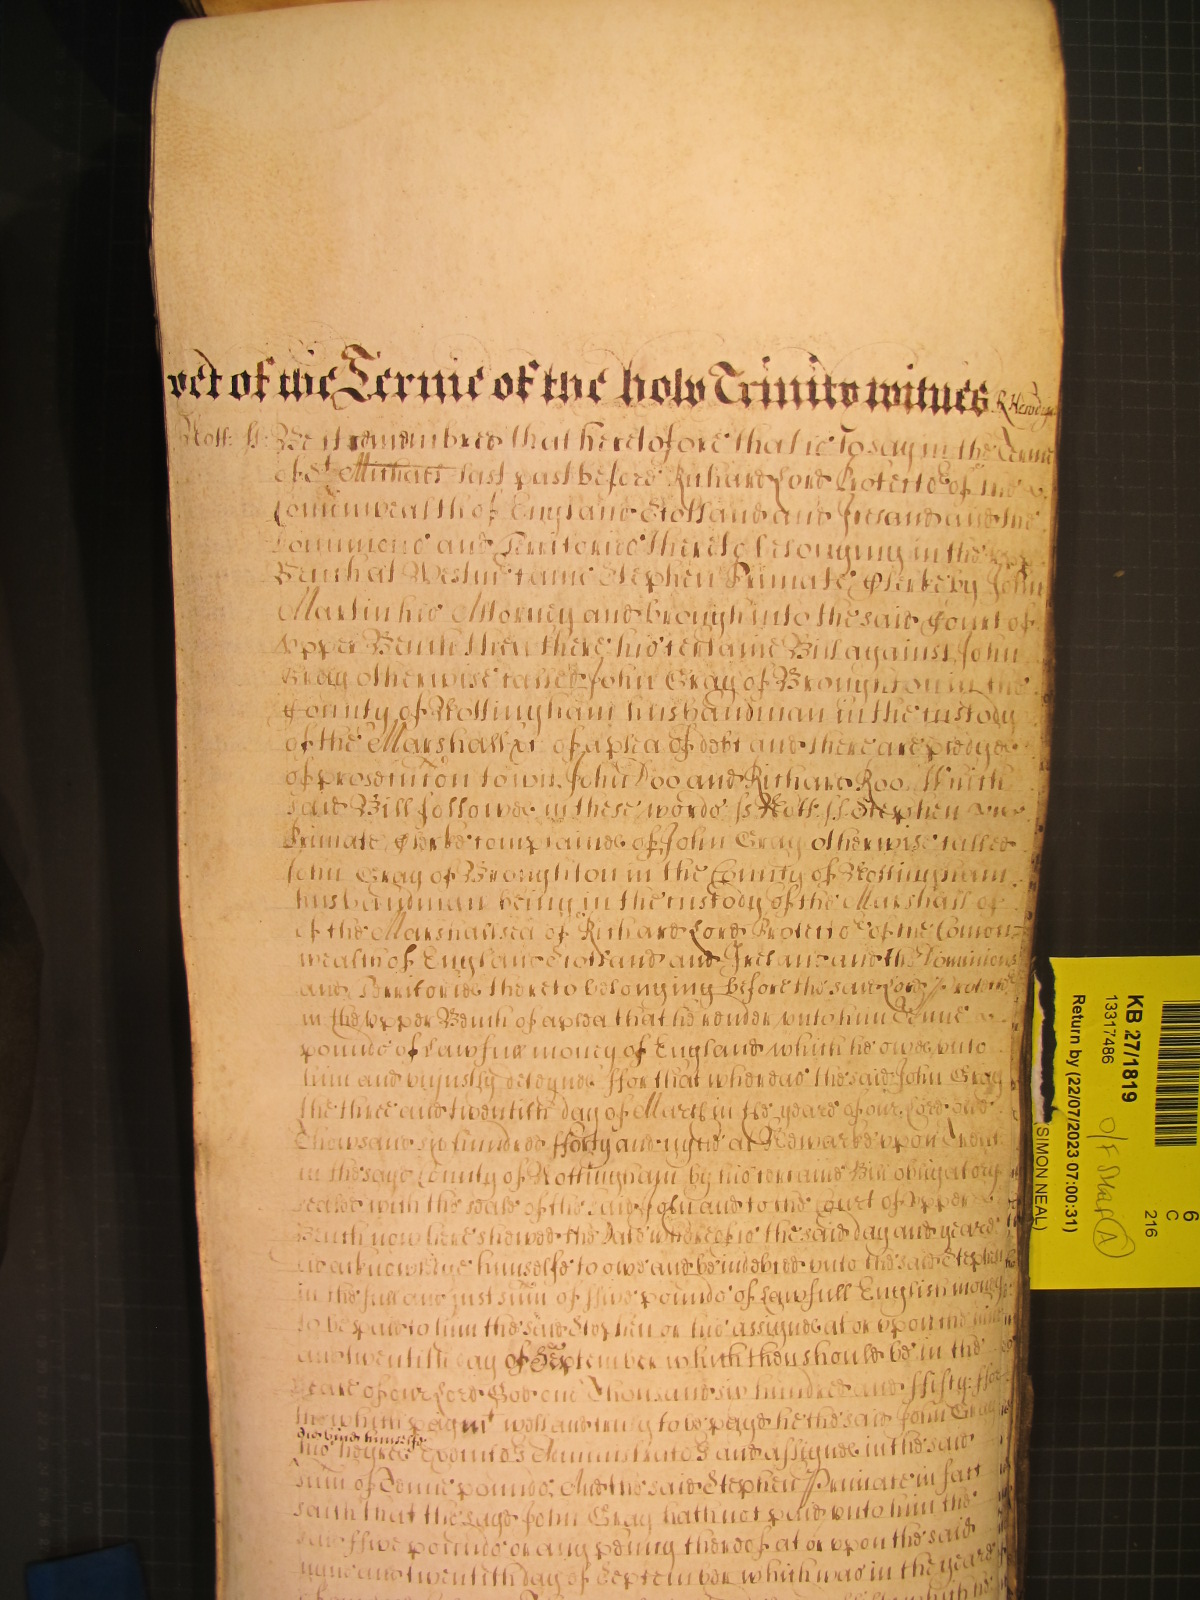 yet of the Terme of the holy Trinity witnes R Hen
Nott: ss: Be it remembred that heretofore that is to say in the Terme
of St Michaell last past before Richard Lord Protector of the
Comonwealth of England Scotland and Ireland and the
Dominions and Territories thereto belonging in the upper
Bench at Westmr came Stephen Primate Clerke by John
Martin his Attorney and brought into the said Court of
Upper Bench then there his certaine Bill against John
Gray otherwise called John Gray of Broughton in the
County of Nottingham husbandman in the custody
of the Marshall &c of a plea of debt and there are pledges
of prosecution to wit John Doo and Richard Roo Which
said Bill followes in these words ss Nott: ss Stephen
Primate Clerke complaines of John Gray otherwise called
John Gray of Broughton in the County of Nottingham
husbandman being in the custody of the Marshall of
of the Marshalsea of Richard Lord Protector of the Comon=
wealth of England Scotland and Ireland and the Dominions
and Territories thereto belonging before the said Lord Protector
in the Upper Bench of a plea that he render unto him Tenne
pounds of lawfull money of England which he owes unto
him and unjustly deteynes ffor that whereas the said John Gray
the three and twentith day of March in the yeare of our Lord one
Thousand six hundred fforty and eight at Newarke upon Trent
in the sayd County of Nottingham by his certaine Bill obligatory
sealed with the seale of the said John and to the Court of Upper
Bench now here shewed the date whereof is the said day and yeare
did acknowledge himselfe to owe and be indebted unto the said Stephen
in the full and just sum of ffive pounds of lawfull English money
to be paid to him the said Stephen or his assignes at or upon the nine
and twentith day of September which then should be in the
yeare of our Lord God one Thousand six hundred and ffifty ffor
the which paymt well and truly to be payd he the said John Gray
did bind himselfe
his heyres Executors Administrators and assignes in the said
sum of Tenne pounds; And the said Stephen Primate in fact
saith that the sayd John Gray hath not paid unto him the
said ffive pounds or any penny thereof at or upon the said
nyne and twentith day of September which was in the yeare
KB 27/1819
13317486
Return by (22/07/2023 07:00:31)
(SIMON NEAL)
O/F Star A
6
C
216